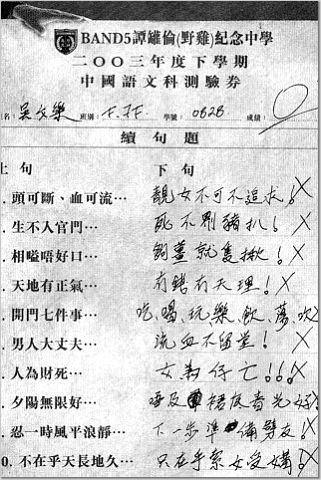 BAND5譚雄倫(野雞)紀念中學
二〇〇三年度下學期
中國語文科測驗券
姓名：吳文樂 班別：F.7F. 學號：0626 成績：
續句題
上句 下句
. 頭可斷、血可流… 靚女不可不追求！
. 生不入官門… 死不別豬扒！
. 相嗌唔好口… 就隻揪！
. 天地有正氣… 有錢有天理！
. 開門七件事… 吃、喝、玩、樂、飲、蕩、吹
. 男人大丈夫… 流血不留堂！
. 人為財死… 女為仔亡！！！
. 夕陽無限好… 唔及裙底春光好
. 忍一時風平浪靜… 下一步準備劈友！
0. 不在乎天長地久… 只在乎系女受媾！